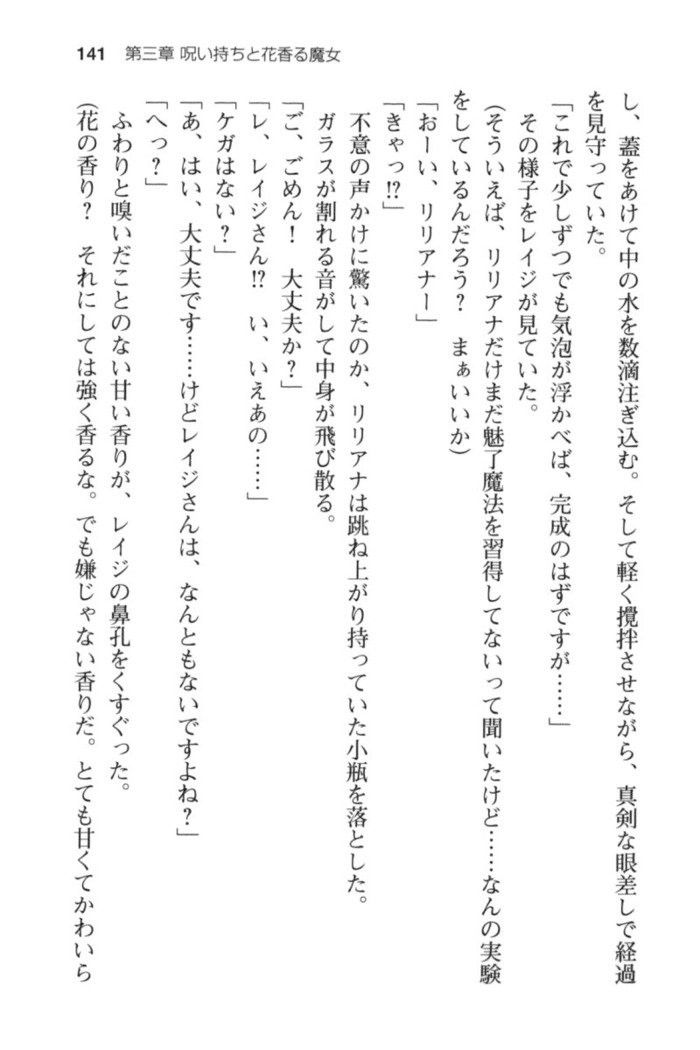 141　第三章 呪い持ちと花香る魔女
し、蓋をあけて中の水を数滴注ぎ込む。そして軽く攪拌させながら、真剣な眼差しで経過
を見守っていた。
「これで少しずつでも気泡が浮かべば、完成のはずですが……」
その様子をレイジが見ていた。
（そういえば、リリアナだけまだ魅了魔法を習得してないって聞いたけど……なんの実験
をしているんだろう？　まぁいいか）
「おーい、リリアナー」
「きゃっ!?」
不意の声かけに驚いたのか、リリアナは跳ね上がり持っていた小瓶を落とした。
ガラスが割れる音がして中身が飛び散る。
「ご、ごめん！　大丈夫か？」
「レ、レイジさん!?　い、いえあの……」
「ケガはない？」
「あ、はい、大丈夫です……けどレイジさんは、なんともないですよね？」
「へっ？」
ふわりと嗅いだことのない甘い香りが、レイジの鼻孔をくすぐった。
（花の香り？　それにしては強く香るな。でも嫌じゃない香りだ。とても甘くてかわいら